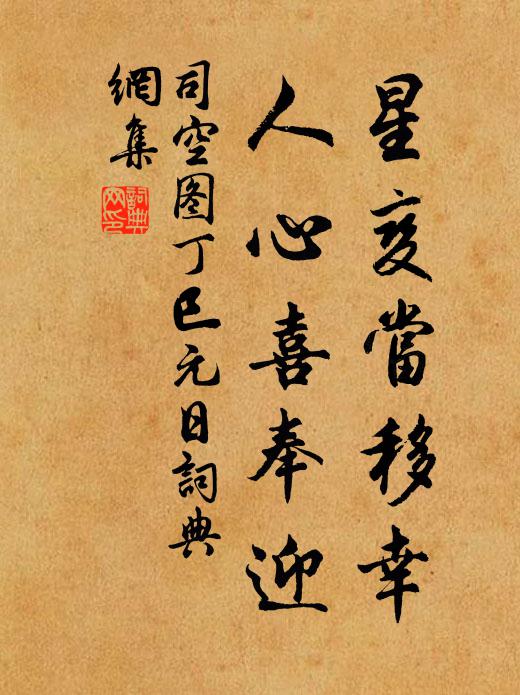 星变當移幸
人心喜奉迎
司空图丁巳元日詞典
網集
詞典網印